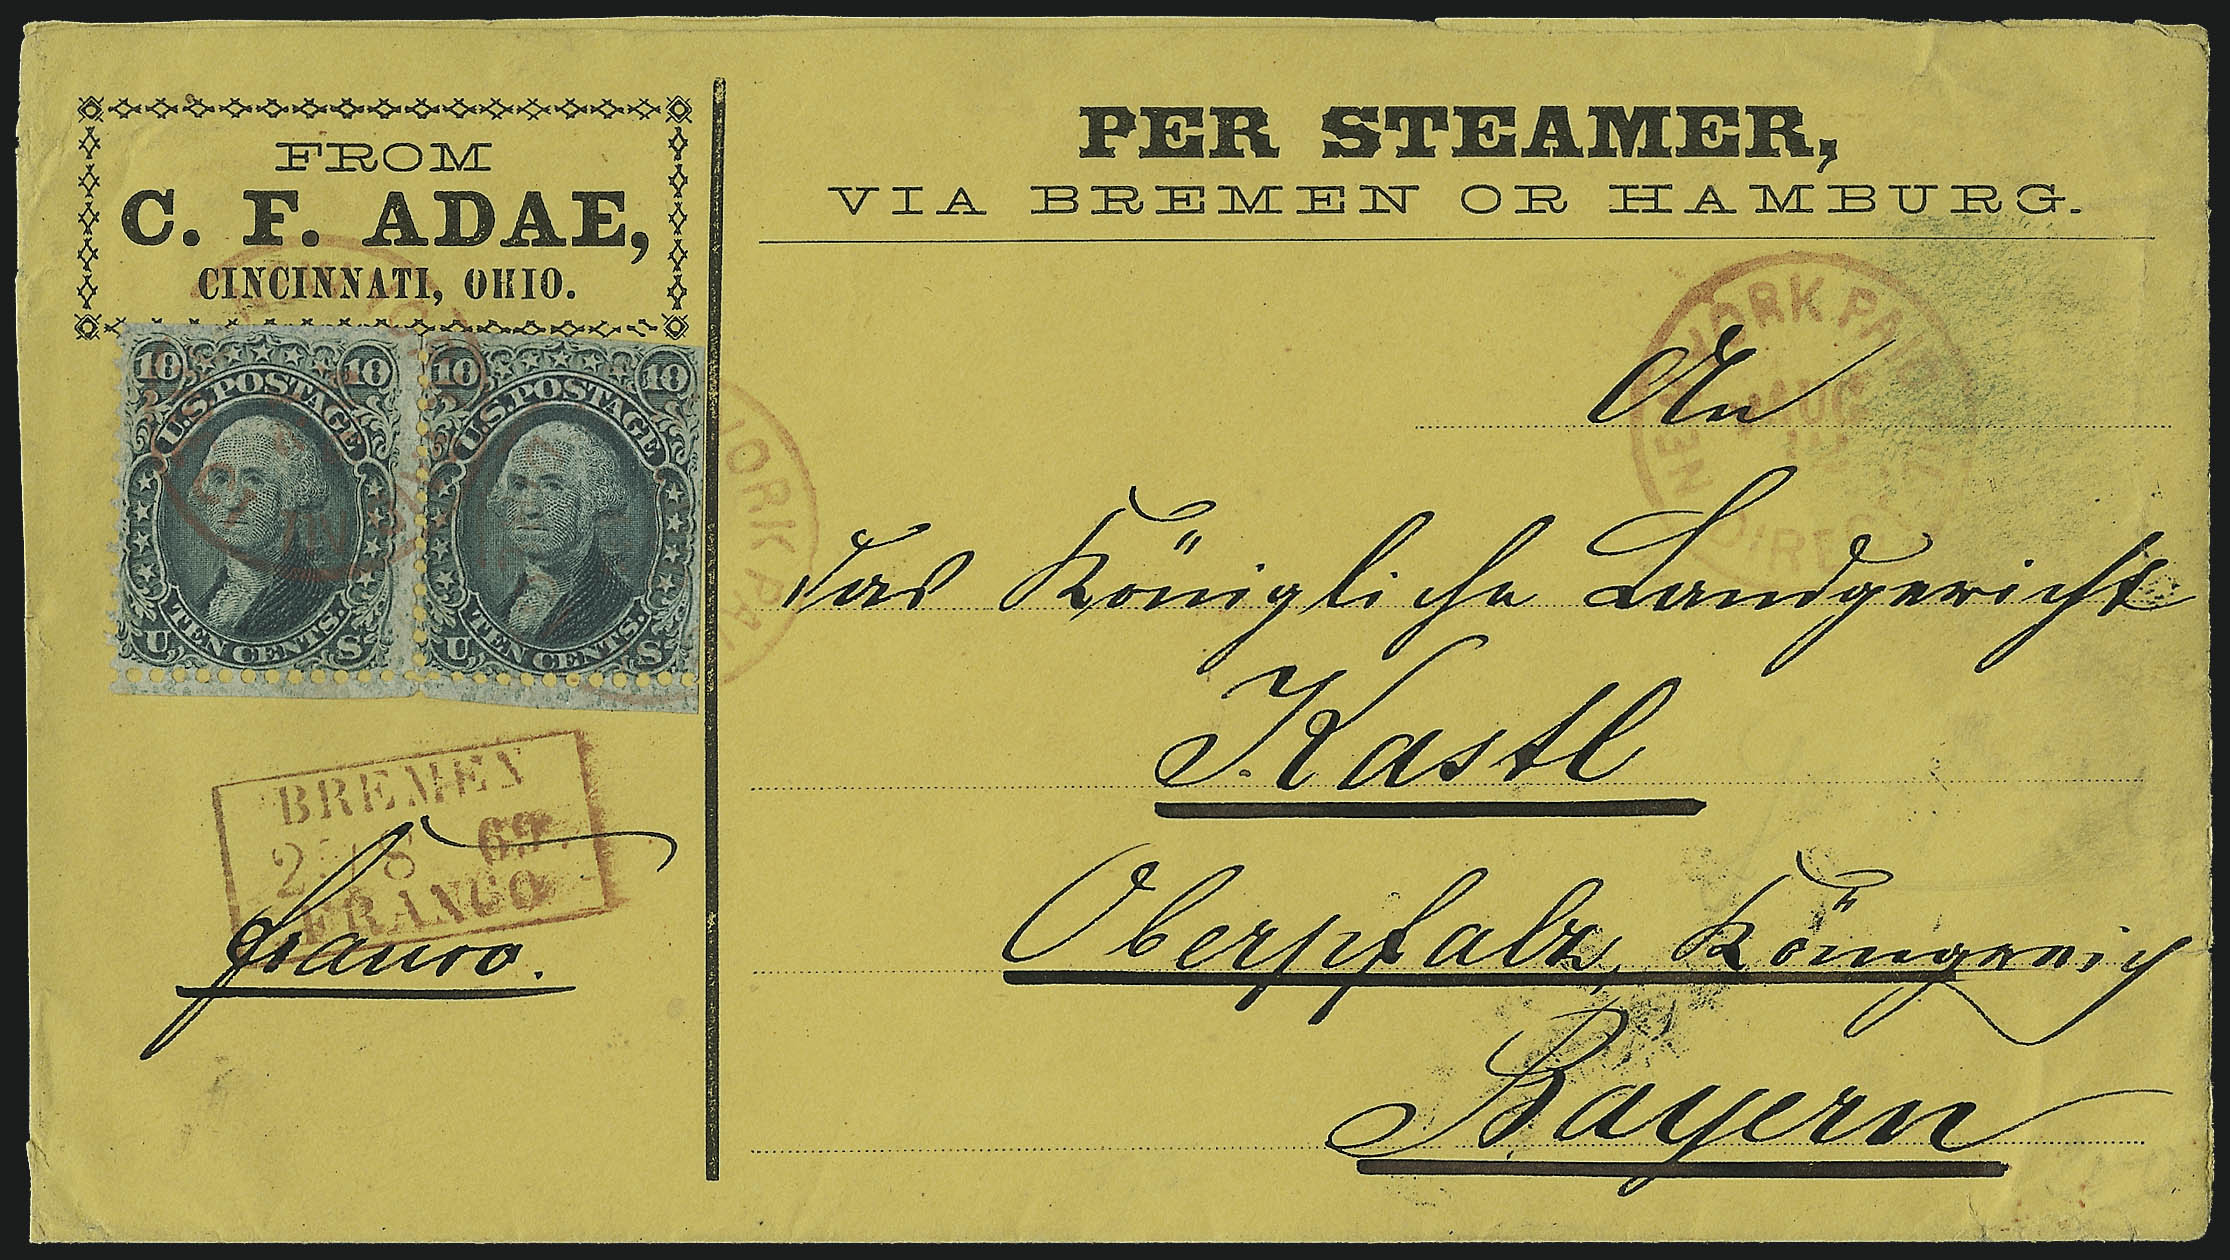 FROM
C. F. ADAE,
CINCINNATI, OHIO.
PER STEAMER,
VIA BREMEN OR HAMBURG.
10 10
U.S. POSTAGE
TEN CENTS.
U S
10 10
U.S. POSTAGE
TEN CENTS.
U S
NEW YORK PAID
AUG
DIRECT
YORK PAI
An
das Königliche Landgericht
Kastl
Oberpfalz, Königreich
Bayern
BREMEN
8 63
FRANCO
franco.